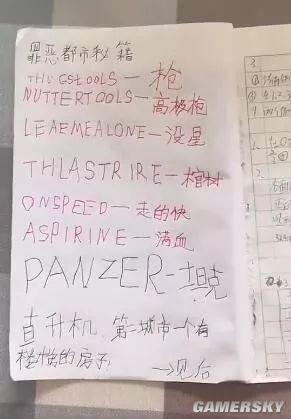 罪恶都市秘籍
THUGSTOOLS—枪
NUTTERTOOLS—高极枪
LEAEMEALONE—没星
THLASTRIRE—棺树
ONSPEED—走的快
ASPIRINE—满血
PANZER—坦克
直升机,第二城市一个有
楼梯的房子
→见后
GAMERSKY